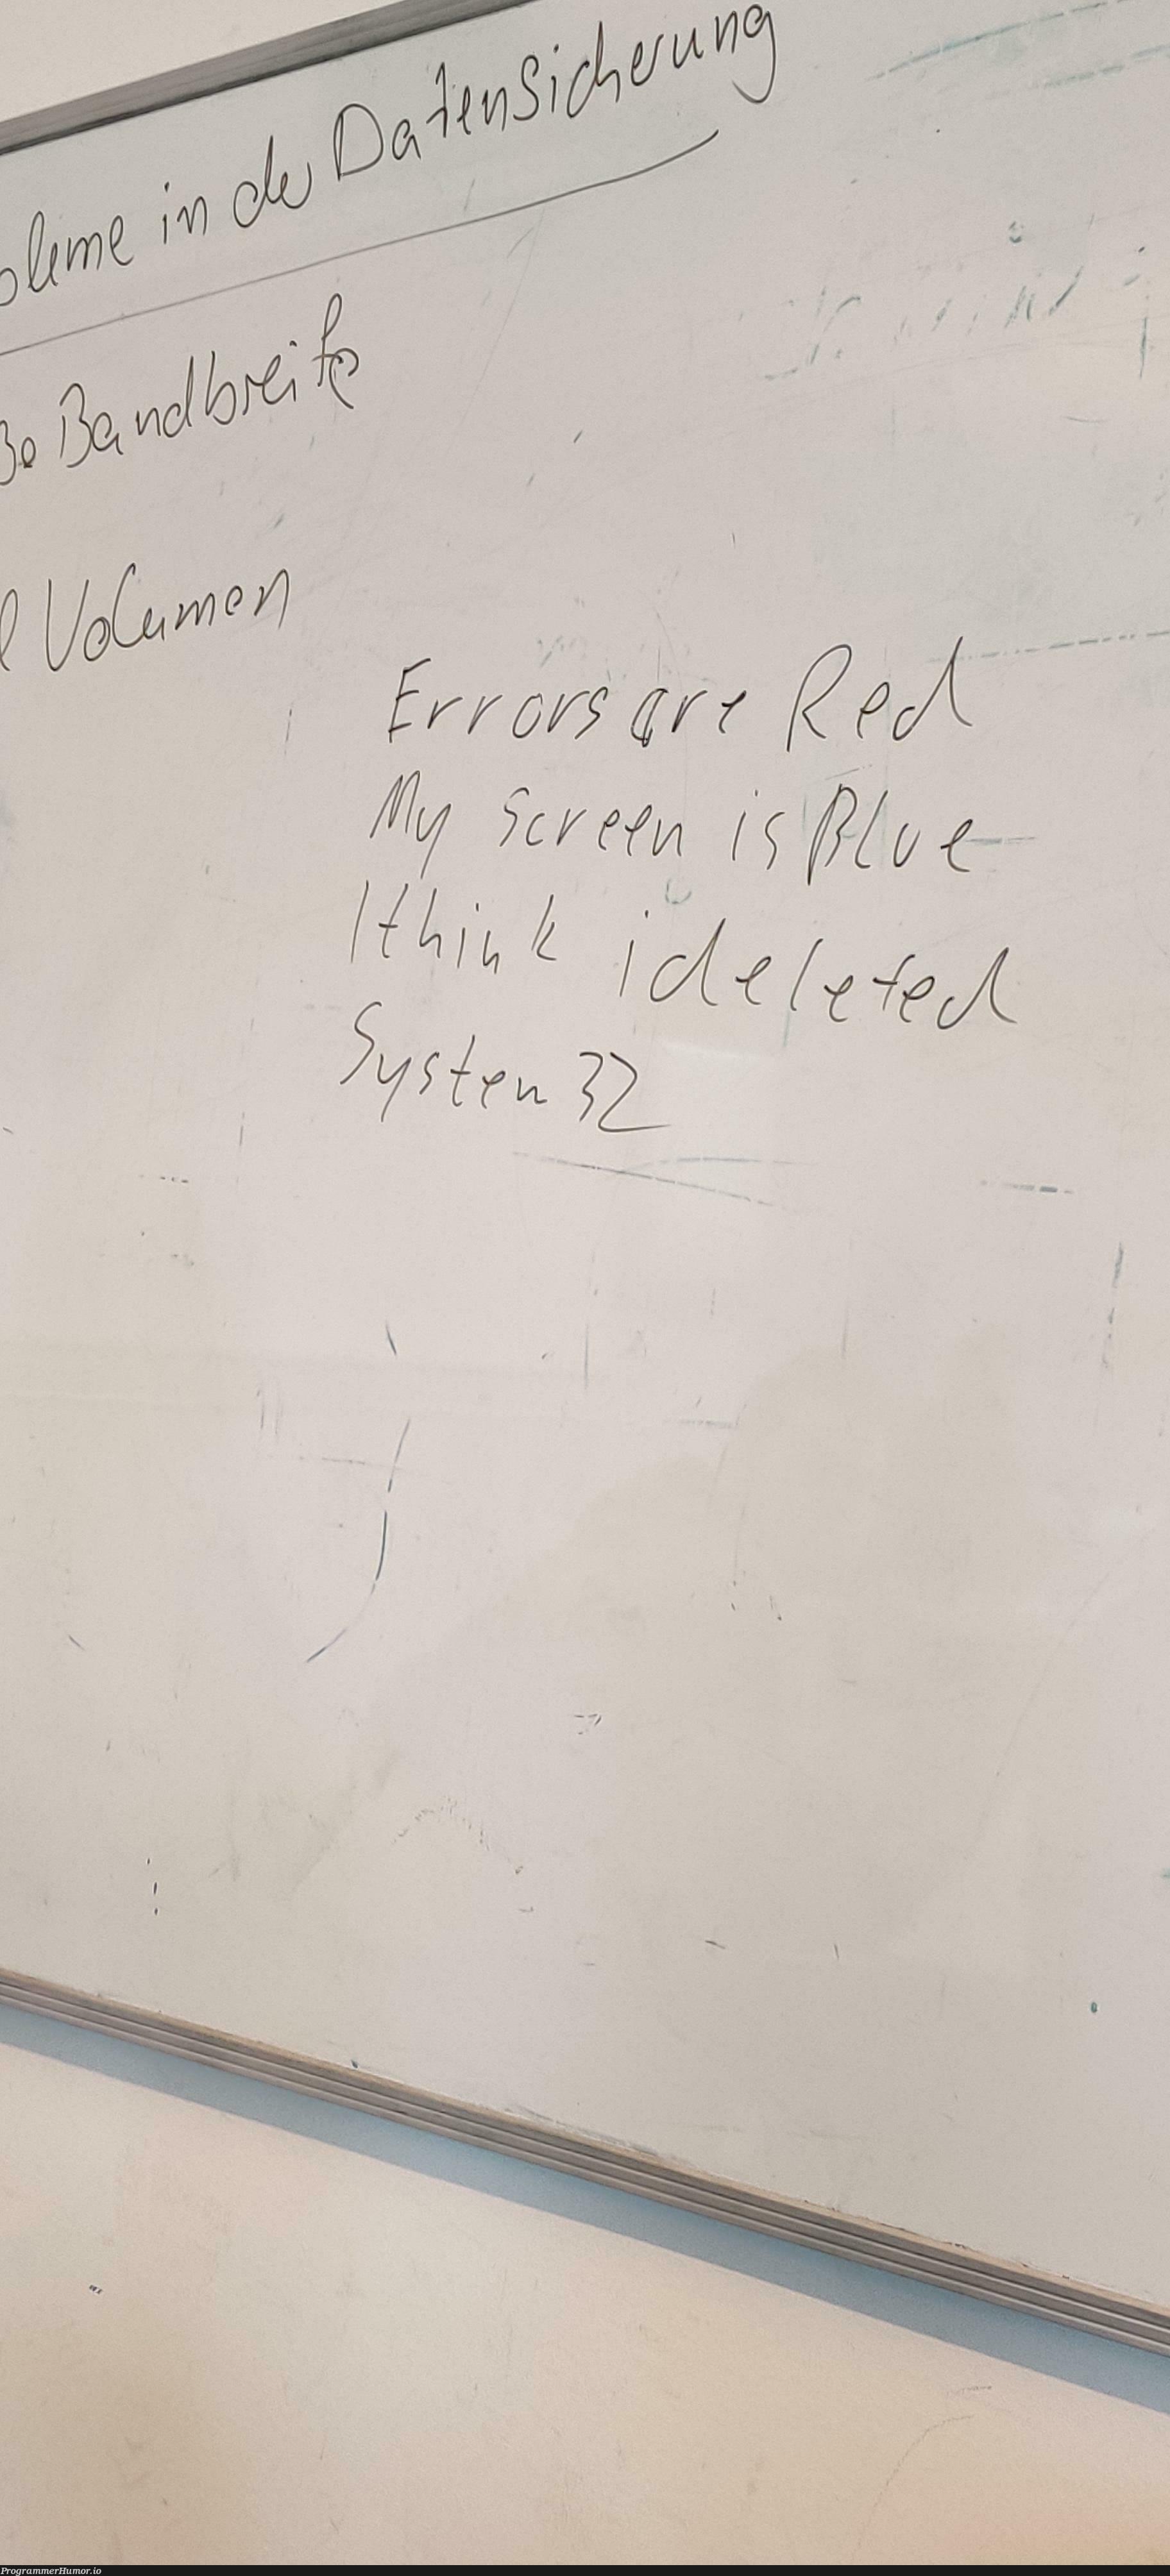 obleme in der Datensicherung
ße Bandbreite
l Volumen
Errors are Red
My screen is Blue
I think i deleted
System 32
ProgrammerHumor.io